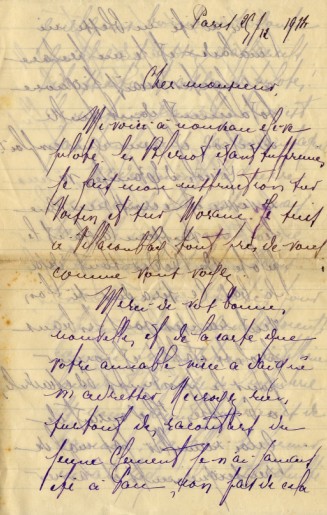 Paris 26/12 1914
Cher monsieur,
Me voici à nouveau élève
pilote, les Blériot étant supprimés
je fait mon instruction sur
Voisin et sur Morane. Je suis
à Villacoublay tout près de vous
comme vous voyez.
Merci de vos bonnes
nouvelles et de la carte que
votre aimable nièce a daigné
m'adresser. Ne croyez rien,
surtout de racontars du
jeune Clement je n'ai jamais
été à Pau, non pas de cela